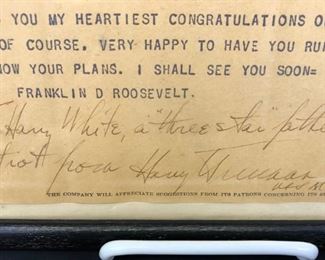 YOU MY HEARTIEST CONGRATULATIONS O
OF COURSE, VERY HAPPY TO HAVE YOU RU
NOW YOUR PLANS. I SHALL SEE YOU SOON=
FRANKLIN D ROOSEVELT.
Harry White, a "three star"
from Harry Truman
THE COMPANY WILL APPRECIATE SUGGESTIONS FROM ITS PATRONS CONCERNING ITS SE